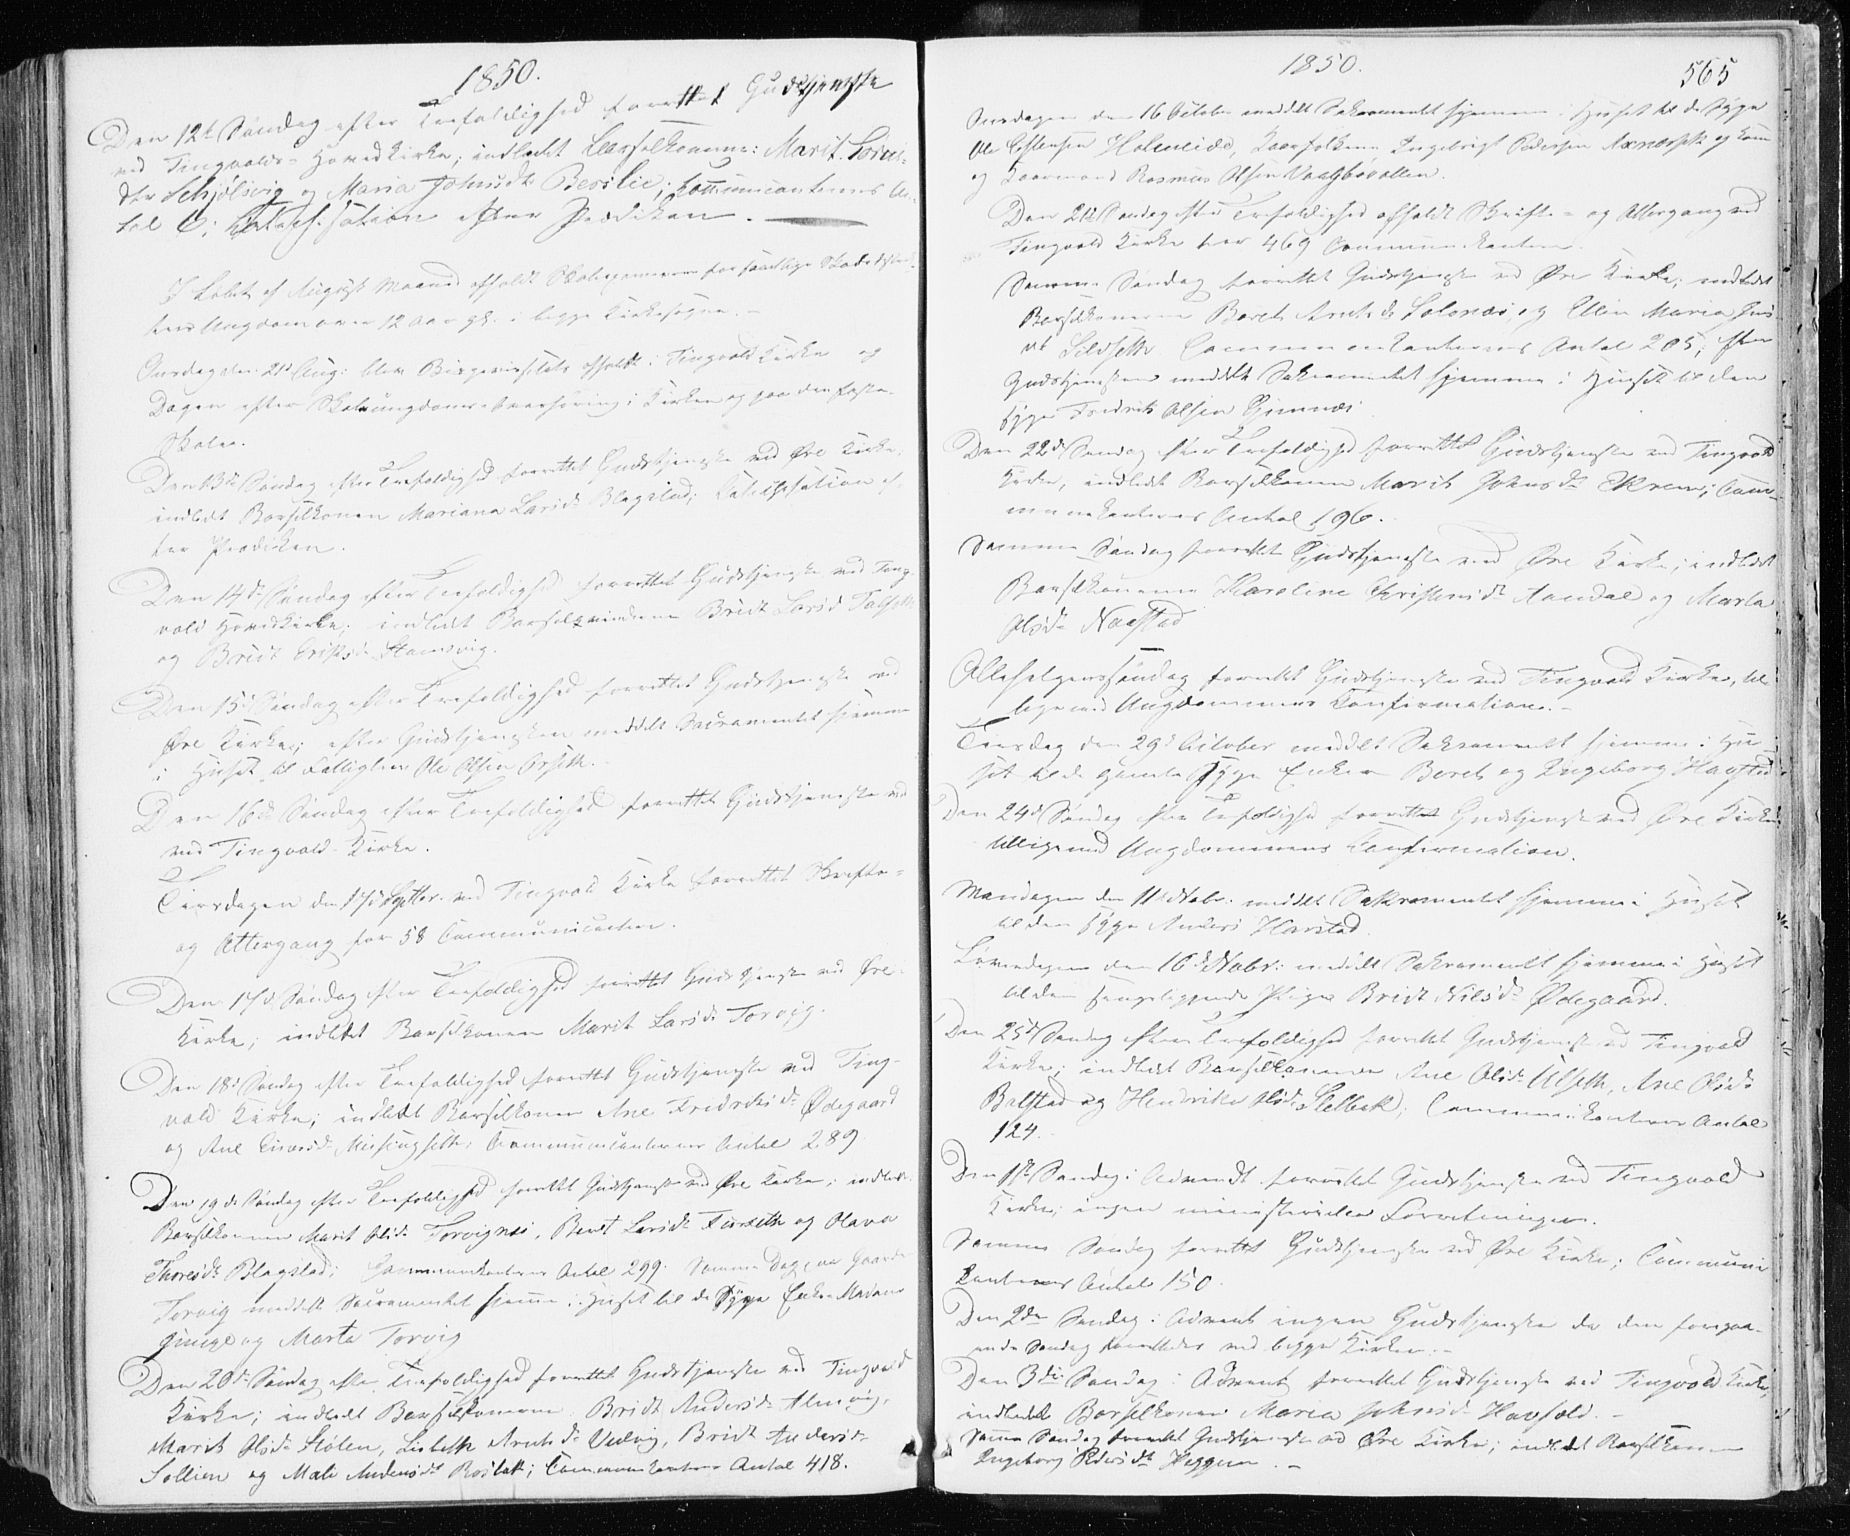 1850.
Den 12te Søndag efter Trefoldighed forrettet Gudstjeneste
ved Tingvolds Hovedkirke; indledt Barselkonerne: Marit Sørens-
dtr Schjølsvig og Maria Johnsdtr Beslie; Communicanternes An-
tal 6; Catechisation efter Prædiken.
I Løbet af August Maaned afholdt Skoleexamen for samtlige Skoledistric-
ters Ungdom over 12 Aar gl. i begge Kirkesogne.-
Onsdag den 21de Aug: blev afholdt i Tingvold Kirke og
Dagen efter Skoleungdoms Overhøring i Kirken og paa den faste
Skole.
Den 13de Søndag efter Trefoldighed forrettet Gudstjeneste ved Øre Kirke,
indledt Barselkonen Mariana Larsdr Blagstad; Catechisation ef-
ter Prædiken.
Den 14de Søndag efter Trefoldighed forrettet Gudstjeneste ved Ting-
vold Hovedkirke; indledt Barselqvinderne Bridt Larsd
og Beridt Eriksd. Hamsvig.
Den 15de Søndag efter Trefoldighed forrettet Gudstjeneste ved
Øre Kirke; efter Gudstjenesten meddelt Sacramentet hjemme
i Huset til Fattiglem Ole Olsen Orseth.
Den 16de Søndag efter Trefoldighed forrettet Gudstjeneste ved
ved Tingvold Kirke.
Tirsdagen den 17de Septbr. ved Tingvold Kirke forrettet Skrifte-
og Altergang for 58 Communicanter.
Den 17de Søndag efter Trefoldighed forrettet Gudstjeneste ved Øre
Kirke; indledt Barselkonen Marit Larsdr Torvig.
Den 18de Søndag efter Trefoldighed forrettet Gudstjeneste ved Ting-
vold Kirke; indledt Barselkonen Ane Fredriksdr Ødegaard
og Ane Meisingseth; Communicanternes Antal 289
Den 19de Søndag efter Trefoldighed forrettet Gudstjeneste ved Øre Kirke; indledt
Barselkonerne Marit Olsdr Torvignes, Beret Larsdr Furseth og Olava
Thoresdr Blagstad; Communicanternes Antal 299. Samme Dag paa Gaarden
Torvig meddelt Sacramentet hjemme i Huset til de Syge Enke
og Marta Torvig
Den 20de Søndag efter Trefoldighed forrettet Gudstjeneste ved Tingvold
Kirke; indledt Barselkonerne Bridt Andersdr Almvig,
Marit Olsdr Stølen, Lisbeth Arntsdr Vedvig, Bridt Andersdr
Sollien og Mali Andersdt Rosbak; Communicanternes Antal 418.
1850.
565
Onsdagen den 16 October meddelt Sakramentet hjemme i Huset til de Syge
Ole Estensen Holmeide, Kaarfolkene Ingebrigt Pedersen og Kone
og Kaarmand Rasmus Olsen Vaagbøvollen.
Den 21de Søndag efter Trefoldighed afholdt Skrifte- og Altergang ved
Tingvold Kirke for 469 Communikanter.
Samme Søndag forrettet Gudstjeneste ved Øre Kirke; indledet
Barselkonerne Beret Arntsdr Solsnes og Ellen Maria
Sildseth Communikanternes Antal 205; efter
Gudstjenesten meddelt Sakramentet hjemme i Huset til den
syge Fredrik Olsen Gimnes
Den 22de Søndag efter Trefoldighed forrettet Gudstjeneste ved Tingvold
Kirke, indledt Barselkonen Marit Johnsdr Ekrem; Com-
munikanternes Antal 196.
Samme Søndag forrettet Gudstjeneste ved Øre Kirke; indledet
Barselkonerne Karoline Christensdr Aandal og Marta
Olsdr Naastad
Allehelgenssøndag forrettet Gudstjeneste ved Tingvold Kirke, til-
ligemed Ungdommens Confirmation.-
Tirsdag den 29de October meddelt Sakramentet hjemme i Hu-
set til de gamle syge Enker Beret og Ingeborg Havsted
Den 24de Søndag efter Trefoldighed forrettet Gudstjeneste ved Øre Kirke
tilligemed Ungdommens Confirmation.
Mandagen den 11te Novbr. meddelt Sakramentet hjemme i Huset
til den syge Anders Harstad.
Løverdagen den 16de Novbr: meddelt Sakramentet hjemme i Huset
til den sengeliggende Pige Bridt Nilsdr Ødegaard.
Den 25de Søndag efter Trefoldighed forrettet Gudstjeneste ved Tingvold
Kirke; indledt Barselkonerne Ane Olsdr Ulseth, Ane Olsdr
Bolstad og Hendrikke Olsdr Skelbak; Communikanternes Antal
124.
Den 1ste Søndag i Advendt forrettet Gudstjeneste ved Tingvold
Kirke; ingen ministerielle Forretninger.
Samme Søndag forrettet Gudstjeneste ved Øre Kirke; Communi-
kanternes Antal 150.
Den 2den Søndag i Advent ingen Gudstjeneste da den foregaa-
ende Søndag forrettedes ved begge Kirker.-
Den 3die Søndag i Advent forrettet Gudstjeneste ved Tingvold Kirke,
indledet Barselkonen Maria Johnsdr Havfold.-
Samme Søndag forrettet Gudstjeneste ved Øre Kirke; indledet Barselkonen
Ingeborg Pedersdr Heggem.-